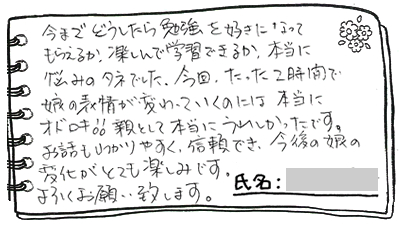 今までどうしたら勉強を好きになって
もらえるか、楽しんで学習できるか、本当に
悩みのタネでした。今回、たった2時間で
娘の表情が変わっていくのには本当に
オドロキ!!親として本当にうれしかったです。
お話もわかりやすく、信頼でき、今後の娘の
変化がとても楽しみです。
よろしくお願い致します。
氏名: